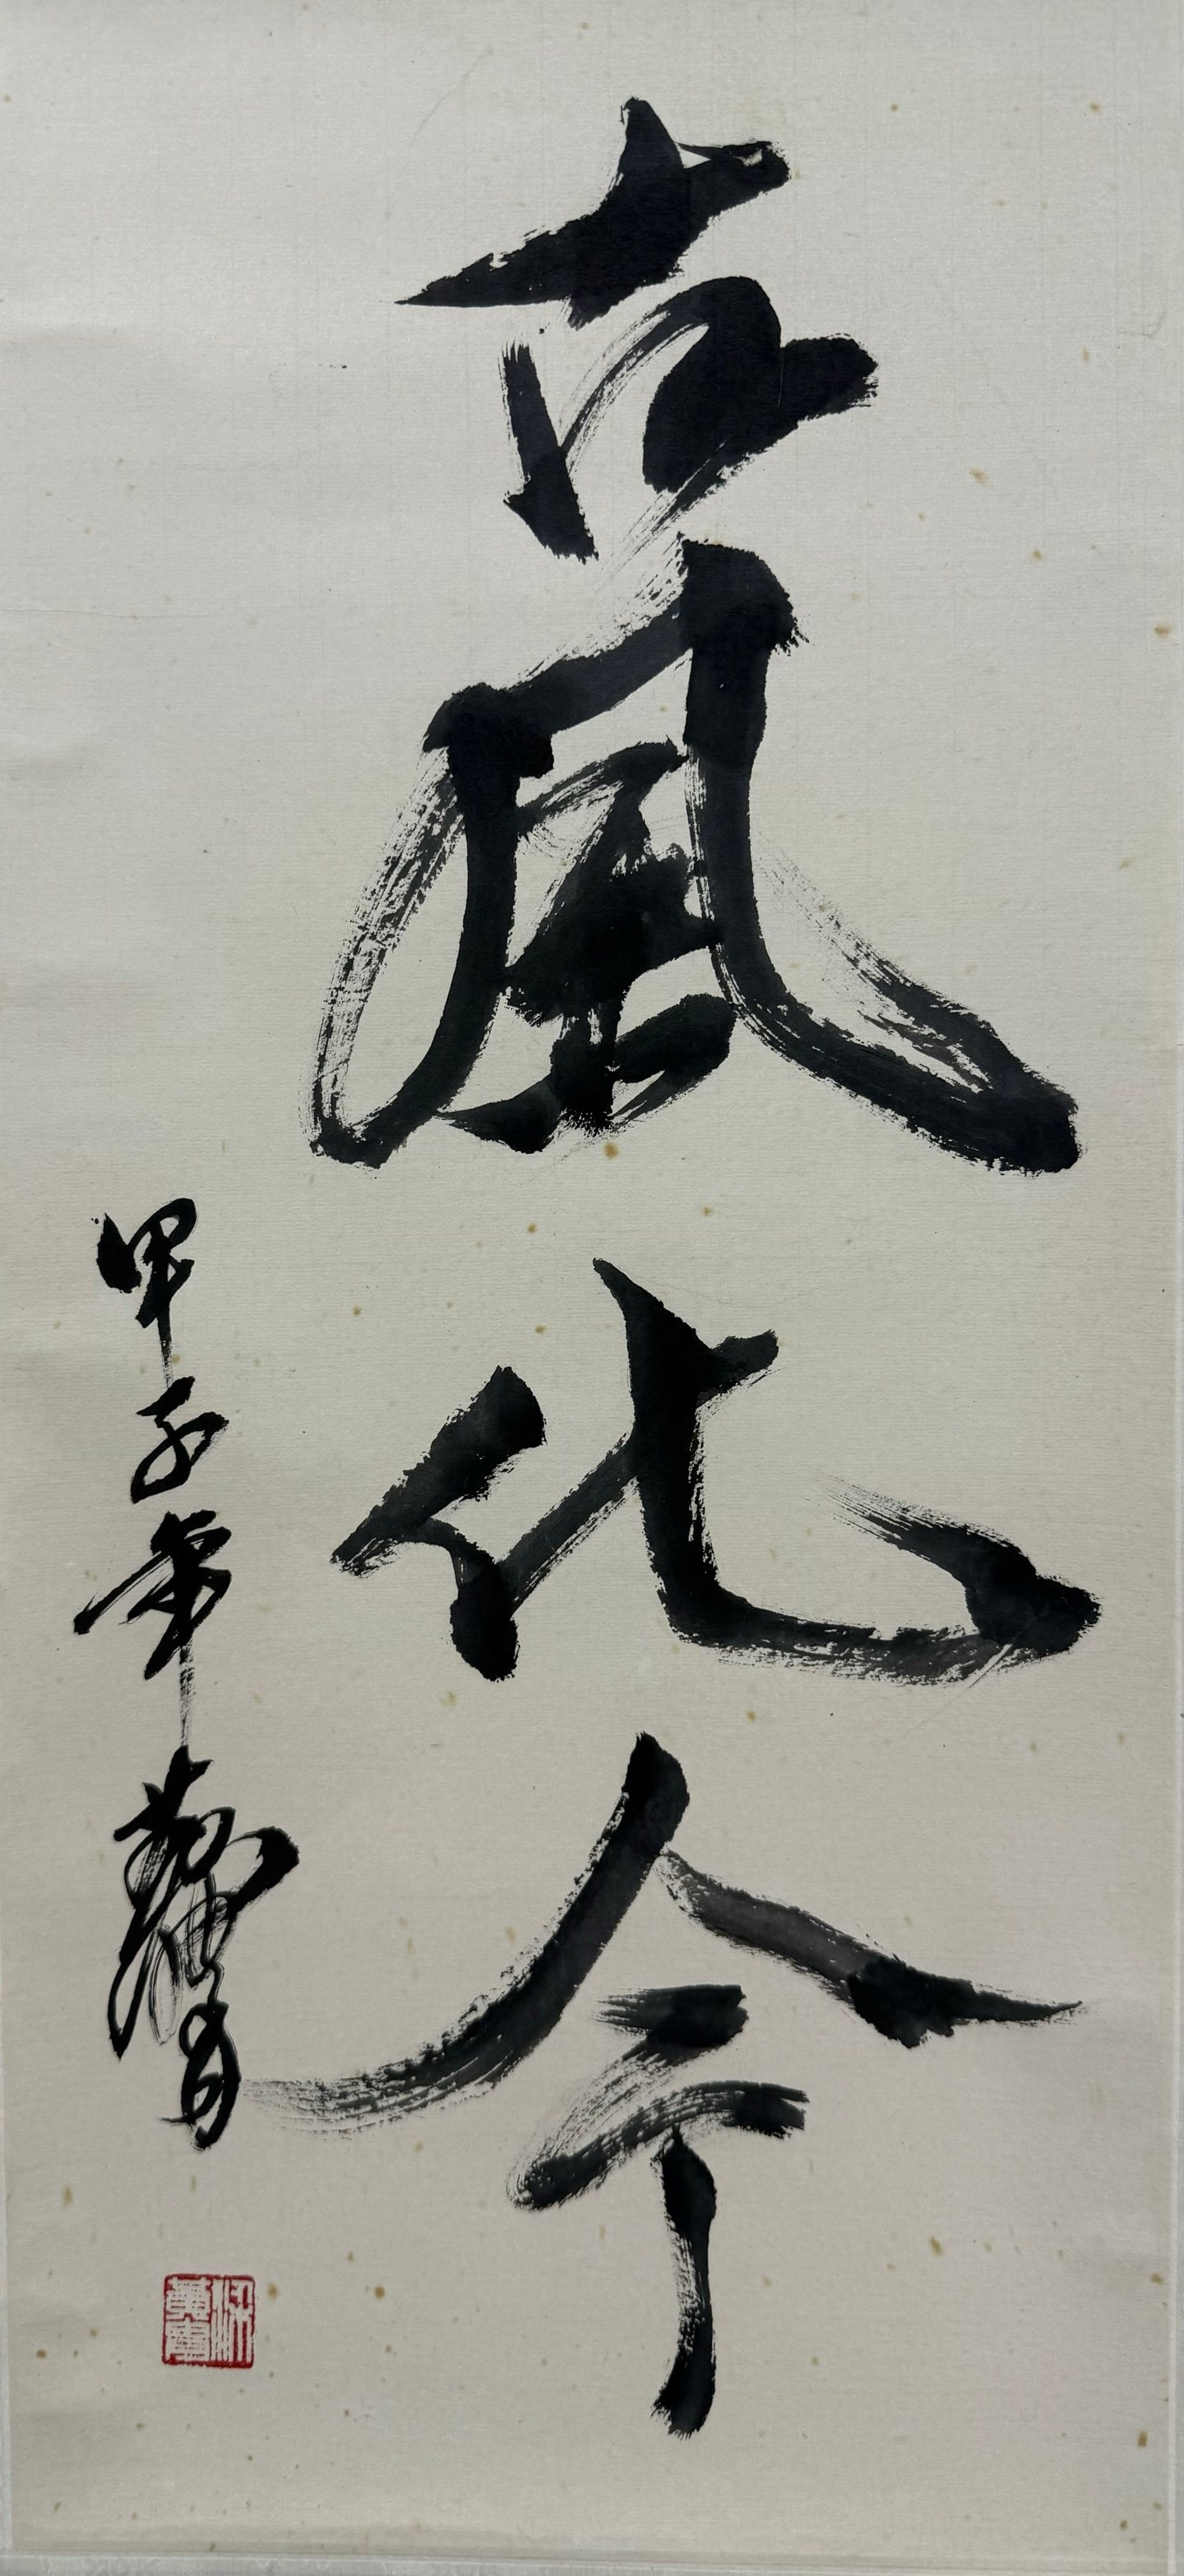 古風化今
甲子年